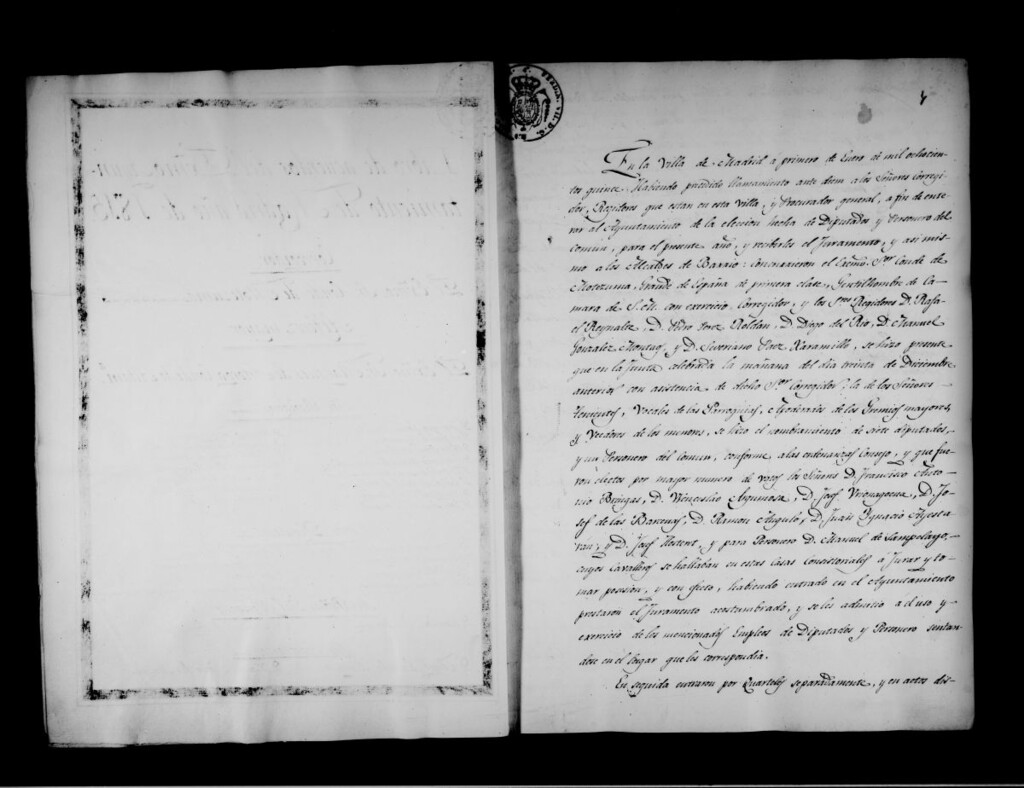 En la Villa de Madrid a primero de Enero de mil ochocien-
tos quince. Habiendo precedido llamamiento ante diem a los Señores Corregi-
dor, Regidores que estan en esta villa, y Procurador general, a fin de ente-
rar al Ayuntamiento de la eleccion hecha de Diputados y Personero del
comun, para el presente año, y recibirles el Juramento, y asi mis-
mo a los Alcaldes de Barrio: concurrieron el Exmo. Sor. Conde de
Motezuma, Grande de España de primera clase, Gentilhombre de Ca-
mara de S.M. con exercicio, Corregidor, y los Sres. Regidores D. Rafa-
el Reynalte, D. Pedro Perez Roldan, D. Diego del Rio, D. Manuel
Gonzalez Montaos, y D. Severiano Paez Xaramillo, se hizo presente
que en la Junta celebrada la mañana del dia treinta de Diciembre
anterior con asistencia de dicho Sor. Corregidor, la de los Señores
Tenientes, Vocales de las Parroquias, Apoderados de los Gremios mayores,
y Veedores de los menores, se hizo el nombramiento de siete diputados,
y un Personero del Comun, conforme a las ordenanzas del Consejo, y que fue-
ron electos por mayor numero de votos los Señores D. Francisco Anto-
nio Bringas, D. Wenceslao Argumosa, D. Josef D. Jo-
sef de las Barcenas, D. Ramon Angulo, D. Juan Ygnacio Ayesta-
ran, y D. Josef y para Personero D. Manuel de Sampelayo,
cuyos Cavalleros se hallaban en estas Casas Consistoriales à Jurar y to-
mar posesion, y con efecto, habiendo entrado en el Ayuntamiento
prestaron el Juramento acostumbrado, y se les admitio à el uso y
exercicio de los mencionados Empleos de Diputados y Personero sentan-
dose en el lugar que les correspondia.
En seguida entraron por Quarteles separadamente, y en actos dis-